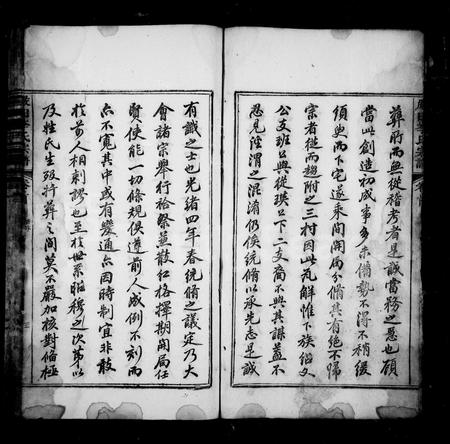 葬所而無從稽考者是誠當務之急也顧
當此創造初成事多未備勢不得不稍緩
須臾而下宅遂乘間開局分脩其有絕不歸
宗者從而趨附之三村因此瓦解惟下族紹文
公支班公與從瑛公下二支裔不與其謀蓋不
忍見涇渭之混淆仍俟統脩以承先志是誠
有識之士也光緒四年春統脩之議定乃大
會諸宗舉行祫祭並散紅格擇期開局任
賢使能一切條規俱遵前人成例不刻而
亦不寬其中或有變通亦因時制宜非敢
於前人相刺謬也至於世系昭穆之次第以
及姓氏生歿行葬之間莫不嚴加核對脩極